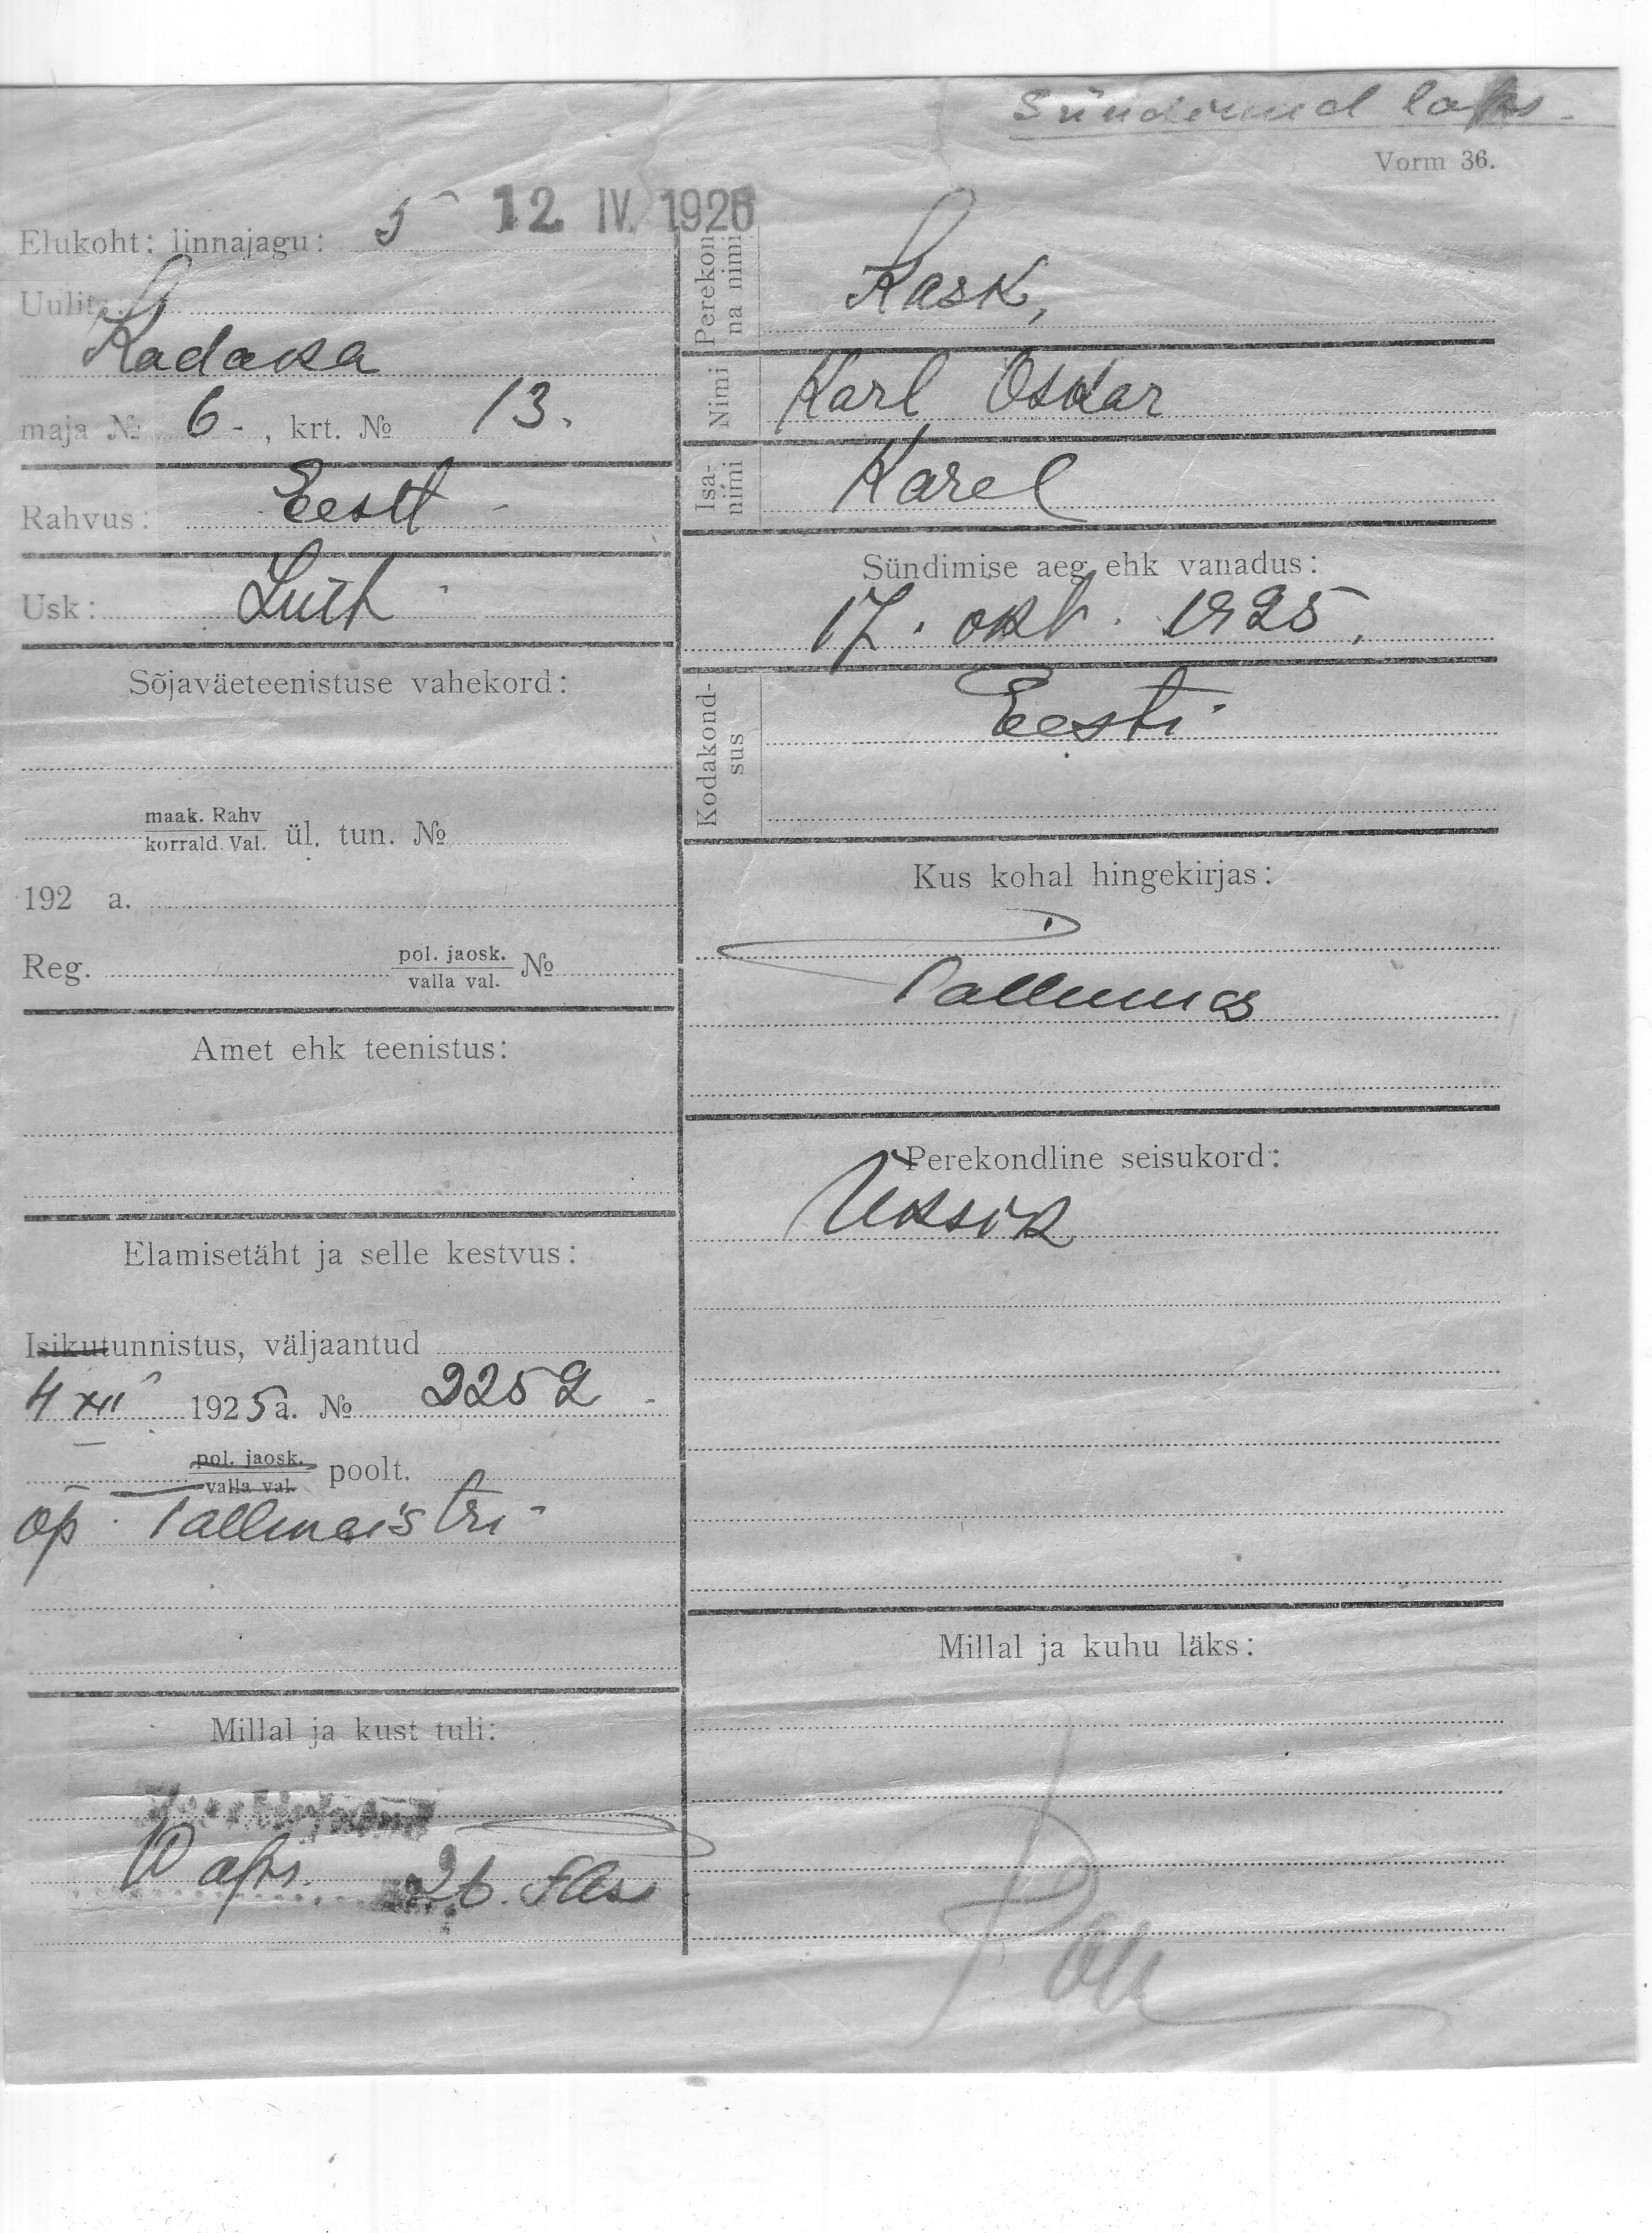 Sündinud laps.
Vorm 36.
12 IV. 1926
Elukoht: linnajagu: 5
Uulits
Kadaka
maja № 6 , krt. № 13.
Rahvus: Eesti
Usk: Luth
Sõjaväeteenistuse vahekord:
maak. Rahv
korrald. Val. ül. tun. №
192 a.
Reg. pol. jaosk.
valla val. №
Amet ehk teenistus:
Elamisetäht ja selle kestvus:
Isikutunnistus, väljaantud
4 XII 1925 a. № 2252
pol. jaosk.
valla val. poolt.
õp. Tallmeistri
Millal ja kust tuli:
Perekonna nimi
Kask,
Nimi Karl Oskar
Isanimi Karel
Sündimise aeg ehk vanadus:
17. okt. 1925.
Kodakondsus
Eesti
Kus kohal hingekirjas:
Tallinnas
Perekondline seisukord:
Üksik
Millal ja kuhu läks: